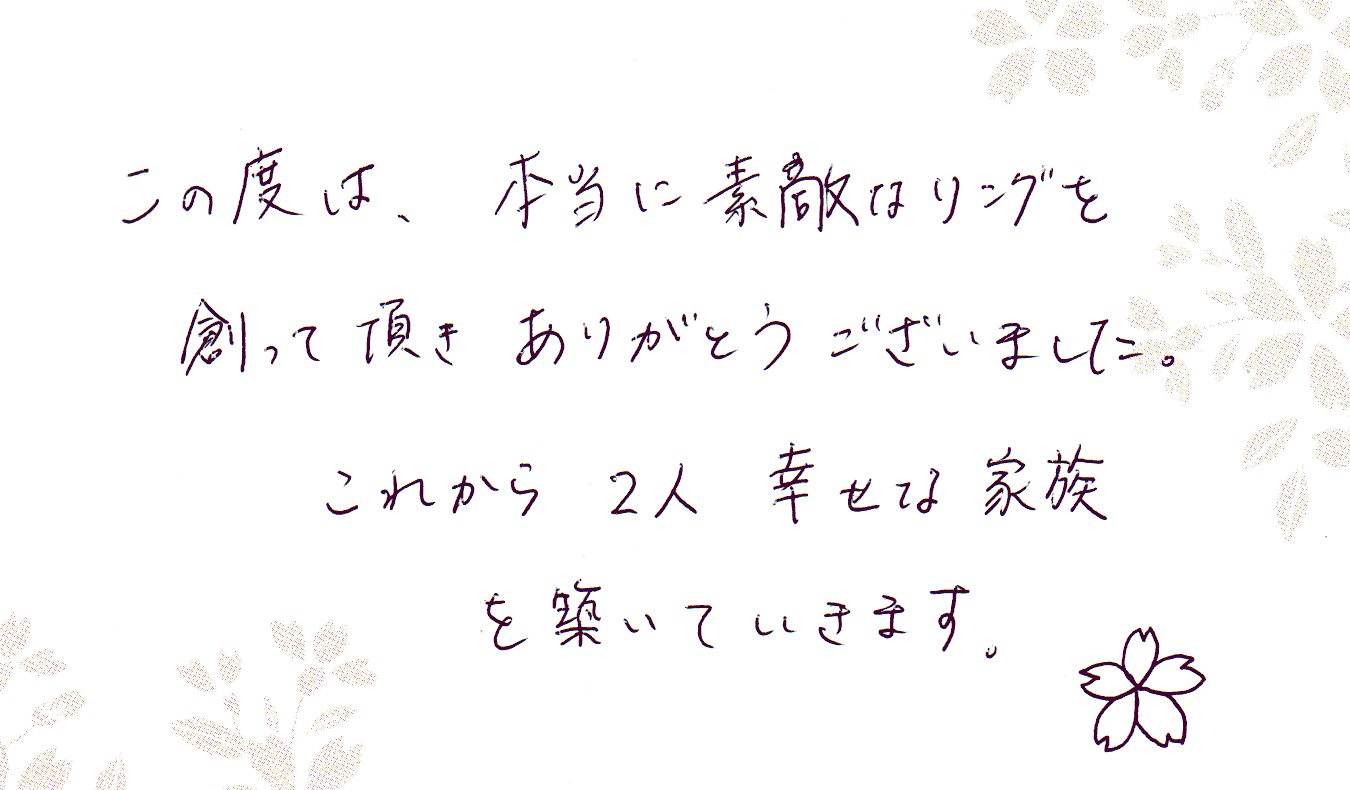 この度は、本当に素敵なリングを
創って頂きありがとうございました。
これから 2人 幸せな 家族
を築いていきます。